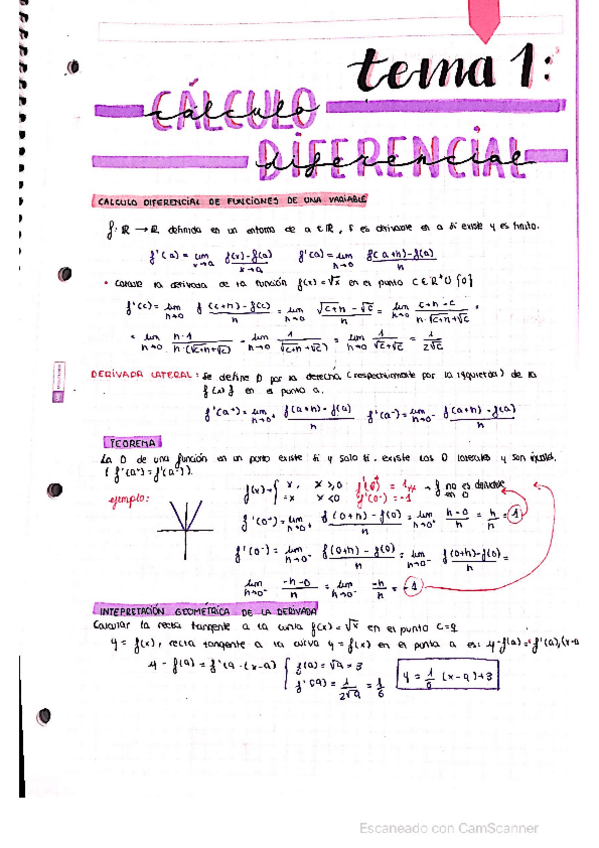 tema 1:
CÁLCULO cálculo
DIFERENCIAL diferencial
CALCULO DIFERENCIAL DE FUNCIONES DE UNA VARIABLE
f: ℝ → ℝ definida en un entorno de a ∈ ℝ, f es derivable en a si existe y es finito.
f'(a) = lim x→a f(x)-f(a) / x-a f'(a) = lim h→0 f(a+h)-f(a) / h
• Calcule la derivada de la función f(x)=√x en el punto C ∈ ℝ⁺ U {0}
f'(c) = lim h→0 f(c+h)-f(c) / h = lim h→0 √c+h - √c / h = lim h→0 c+h-c / h·√c+h+√c =
= lim h→0 h·1 / h·(√c+h+√c) = lim h→0 1 / (√c+h+√c) = lim h→0 1 / √c+√c = 1 / 2√c
DERIVADA LATERAL: Se define D por la derecha (respectivamente por la izquierda) de la
f(x) en el punto a.
f'(a⁺) = lim h→0⁺ f(a+h)-f(a) / h f'(a⁻) = lim h→0⁻ f(a+h)-f(a) / h
TEOREMA
La D de una función en un punto existe si y solo si existe las D laterales y son iguales.
(f'(a⁺)=f'(a⁻)).
ejemplo:
f(x) = { x, x ≥ 0 -x x < 0 f'(0⁺) = 1 ≠ f'(0⁻) = -1 → f no es derivable en 0
f'(0⁺) = lim h→0⁺ f(0+h)-f(0) / h = lim h→0⁺ h-0 / h = h / h = 1
f'(0⁻) = lim h→0⁻ f(0+h)-f(0) / h = lim h→0⁻ f(0+h)-f(0) / h =
lim h→0⁻ -h-0 / h = lim h→0⁻ -h / h = -1
INTEPRETACIÓN GEOMÉTRICA DE LA DERIVADA
Calcular la recta tangente a la curva f(x)=√x en el punto C=9
y = f(x), recta tangente a la curva y = f(x) en el punto a es: y-f(a) = f'(a)·(x-a
y - f(9) = f'(9)·(x-9) { f(9) = √9 = 3
f'(9) = 1 / 2√9 = 1 / 6
y = 1 / 6 (x-9)+3
Escaneado con CamScanner